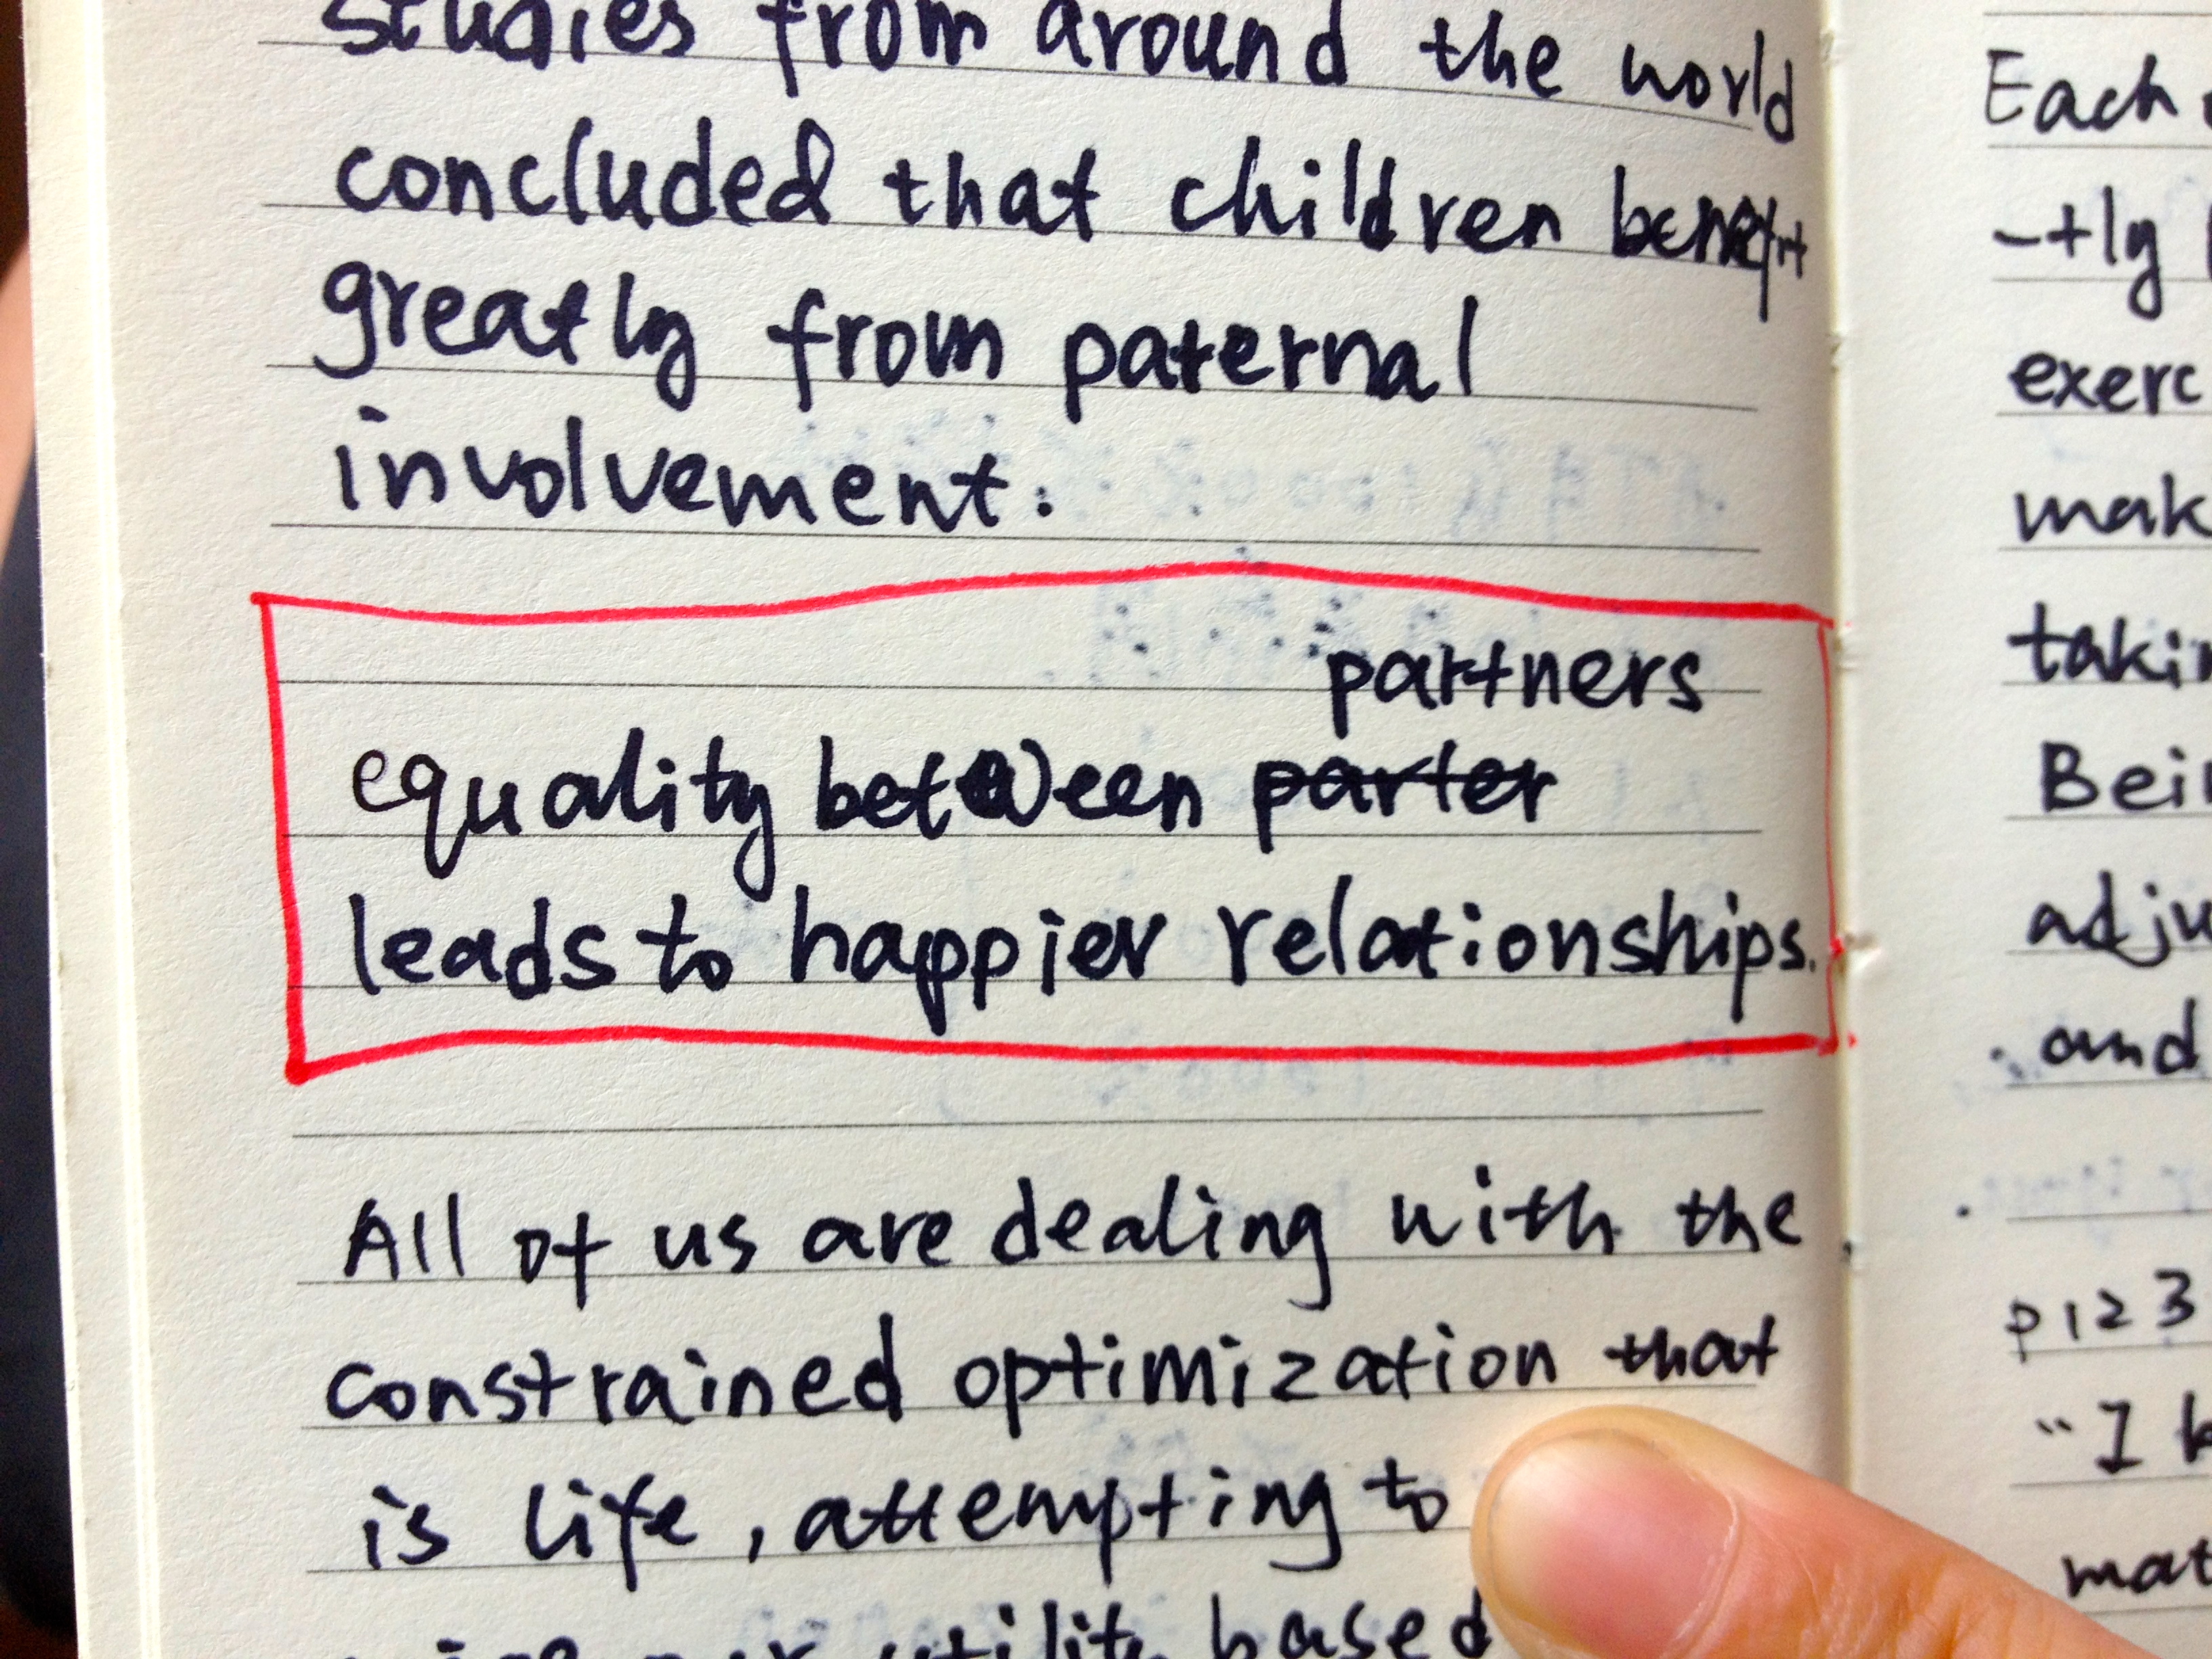 studies from around the world
concluded that children benefit
greatly from paternal
involvement.
partners
equality between parter
leads to happier relationships.
All of us are dealing with the
constrained optimization that
is life, attempting to
utility based
Each
-tly
exerc
mak
takin
Bein
adju
and
p123
"I k
mat